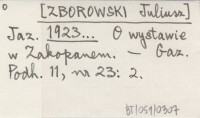 [ZBOROWSKI Juliusz]
Jaz. 1923... O wystawie
w Zakopanem. — Gaz.
Podh. 11, nr 23: 2.
BT/059/0307